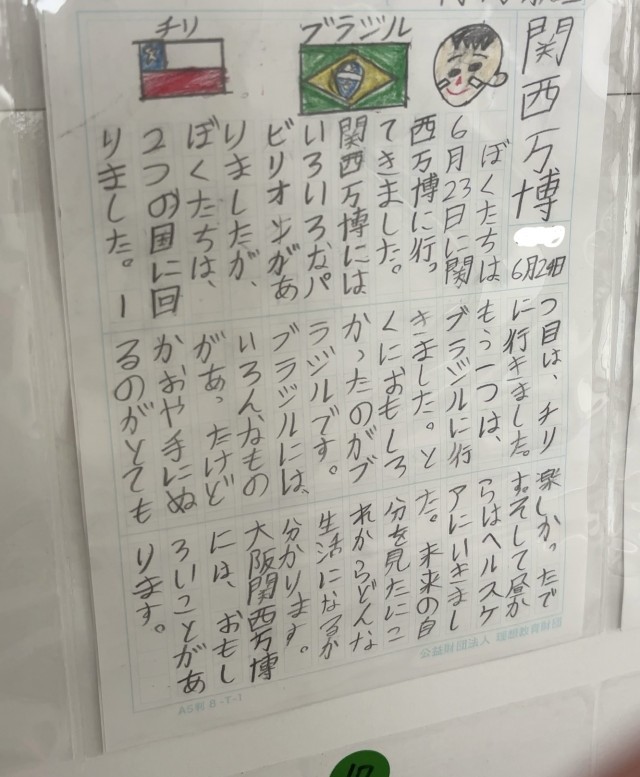 関西万博
6月24日
チリ
ブラジル
ぼくたちは
6月23日に関
西万博に行っ
てきました。
関西万博には
いろいろなパ
ビリオンがあ
りましたが、
ぼくたちは、
2つの国に回
りました。一
つ目は、チリ
に行きました。
もう一つは、
ブラジルに行
きました。と
くにおもしろ
かったのがブ
ラジルです。
ブラジルには、
いろんなもの
があったけど
かおや手にぬ
るのがとても
楽しかったで
す。そして昼か
らはヘルスケ
アにいきまし
た。未来の自
分を見たにこ
れからどんな
生活になるか
分かります。
大阪関西万博
には、おもし
ろいことがあ
ります。
公益財団法人 理想教育財団